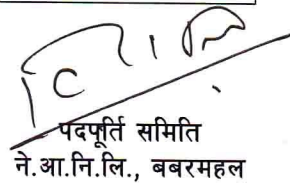 पदपूर्ति समिति
ने.आ.नि.लि., बबरमहल